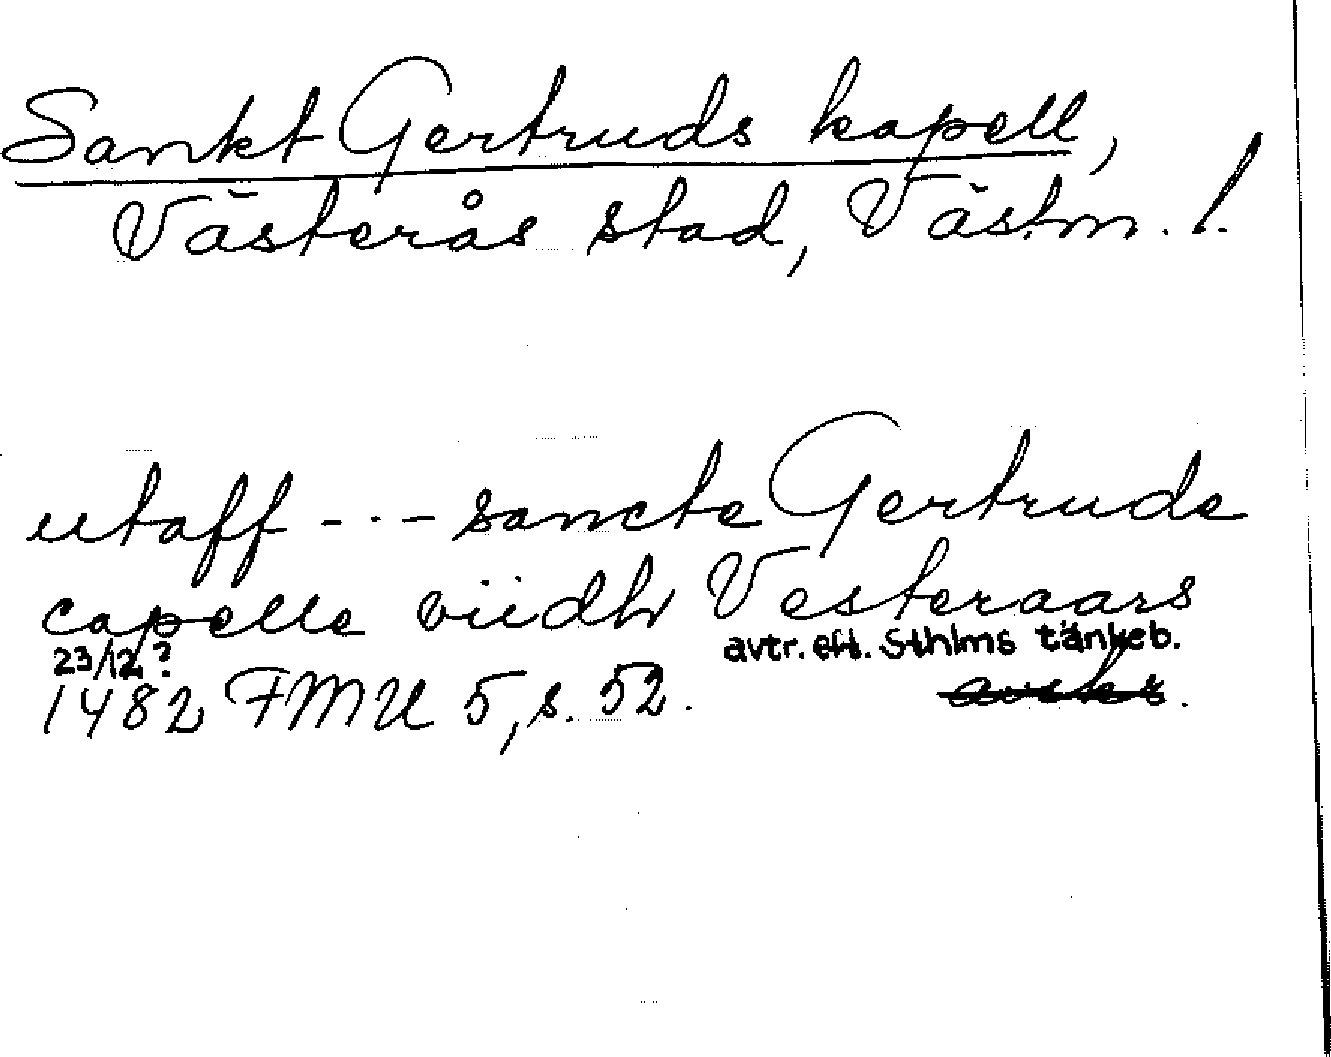 Sankt Gertruds kapell,
Västerås stad, Västm. l.
utaff --- sancte Gertrude
capelle viidh Vesteraars
23/12? avtr. eft. Sthlms tänkeb.
1482 FMU 5, s. 52.